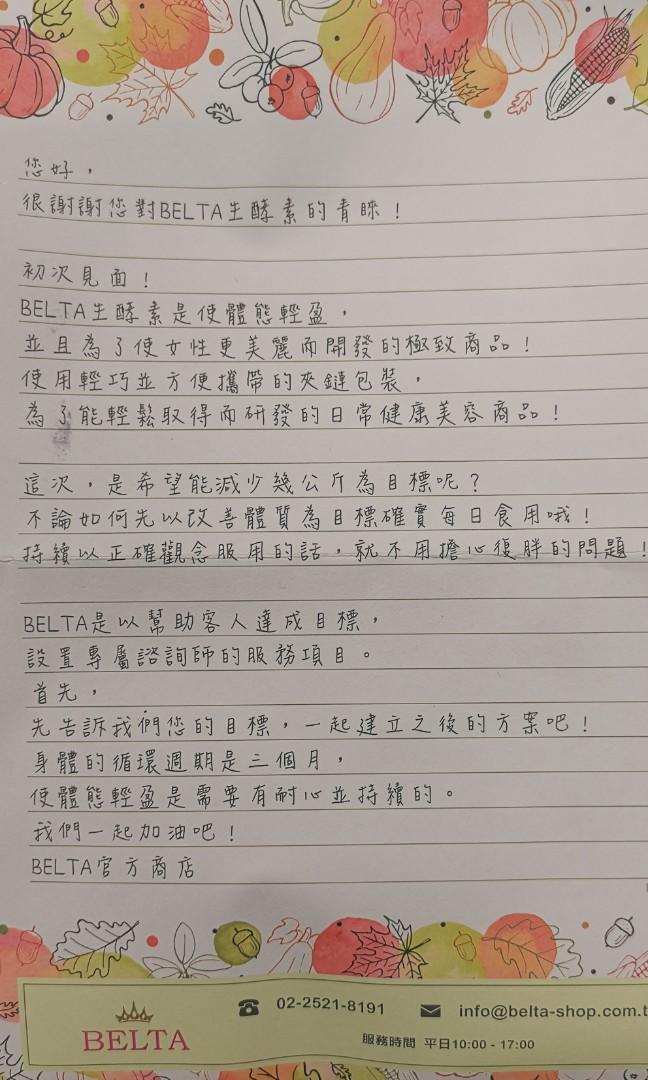 您好，
很謝謝您對BELTA生酵素的青睞！
初次見面！
BELTA生酵素是使體態輕盈，
並且為了使女性更美麗而開發的極致商品！
使用輕巧並方便攜帶的夾鏈包裝，
為了能輕鬆取得而研發的日常健康美容商品！
這次，是希望能減少幾公斤為目標呢？
不論如何先以改善體質為目標確實每日食用哦！
持續以正確觀念服用的話，就不用擔心復胖的問題！
BELTA是以幫助客人達成目標，
設置專屬諮詢師的服務項目。
首先，
先告訴我們您的目標，一起建立之後的方案吧！
身體的循環週期是三個月，
使體態輕盈是需要有耐心並持續的。
我們一起加油吧！
BELTA官方商店
BELTA
02-2521-8191
info@belta-shop.com.t
服務時間 平日10:00 - 17:00